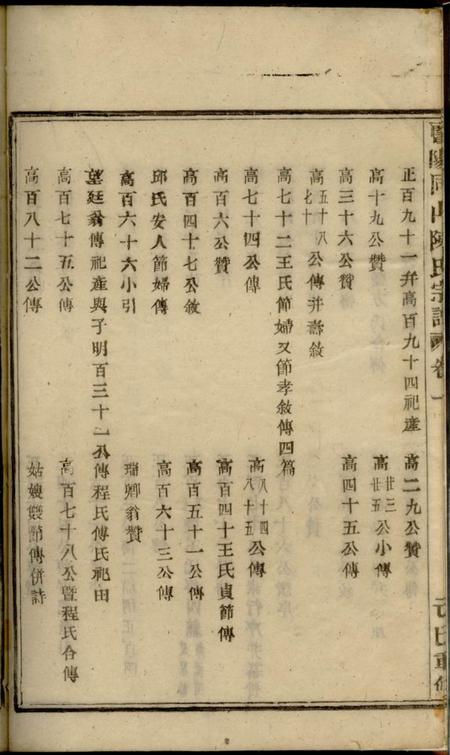 暨陽同山陳氏宗譜 卷一
正百九十一弁高百九十四祀產 高二九公贊
高十九公贊 高廿三廿五公小傳
高三十六公贊 高四十五公傳
高五十八七十公傳并壽敘
高七十二王氏節婦又節孝敘傳四篇
高七十四公傳 高八十四八十五公傳
高百六公贊 高百四十王氏貞節傳
高百四十七公敘 高百五十一公傳
邱氏安人節婦傳 高百六十三公傳
高百六十六小引 瑞卿翁贊
望廷翁傳祀產與子明百三十二公傳程氏傅氏祀田
高百七十五公傳 高百七十八公暨程氏合傳
高百八十二公傳 姑嫂雙節傳併詩